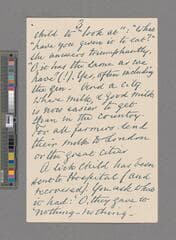 3
child to "look at": "What
have you given it to eat?"
she answers triumphantly,
"O it has the same as we
have (!). Yes, often including
the gin. And a City
where milk, & good milk
is now easier to get
than in the country
For all farmers send
their milk to London
or the great cities.
A sick Child has been
sent to Hospital (and
recovered). You ask what
it had: "O, they gave it
nothing - nothing -